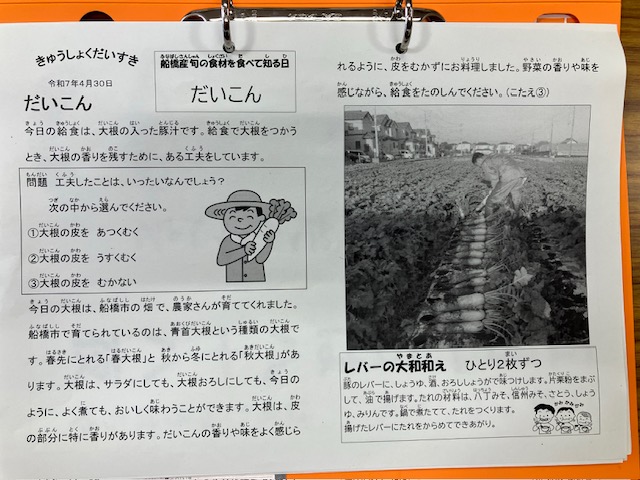 きゅうしょくだいすき
令和7年4月30日
だいこん
船橋産旬の食材を食べて知る日
だいこん
今日の給食は、大根の入った豚汁です。給食で大根をつかう
とき、大根の香りを残すために、ある工夫をしています。
問題 工夫したことは、いったいなんでしょう?
次の中から選んでください。
①大根の皮を あつくむく
②大根の皮を うすくむく
③大根の皮を むかない
今日の大根は、船橋市の畑で、農家さんが育ててくれました。
船橋市で育てられているのは、青首大根という種類の大根で
す。春先にとれる「春大根」と 秋から冬にとれる「秋大根」があ
ります。大根は、サラダにしても、大根おろしにしても、今日の
ように、よく煮ても、おいしく味わうことができます。大根は、皮
の部分に特に香りがあります。だいこんの香りや味をよく感じら
れるように、皮をむかずにお料理しました。野菜の香りや味を
感じながら、給食をたのしんでください。(こたえ③)
レバーの大和和え ひとり2枚ずつ
豚のレバーに、しょうゆ、酒、おろししょうがで味つけします。片栗粉をまぶ
して、油で揚げます。たれの材料は、八丁みそ、信州みそ、さとう、しょう
ゆ、みりんです。鍋で煮たてて、たれをつくります。
揚げたレバーにたれをからめてできあがり。